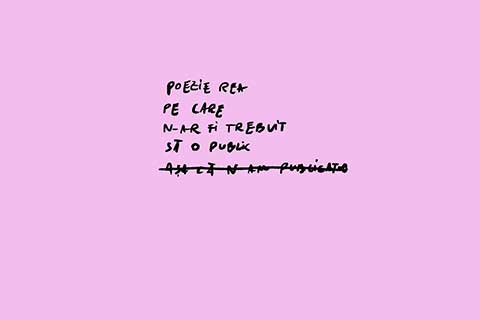 POEZIE REA
PE CARE
N-AR FI TREBUIT
SĂ O PUBLIC
AȘA CĂ N-AM PUBLICAT-O